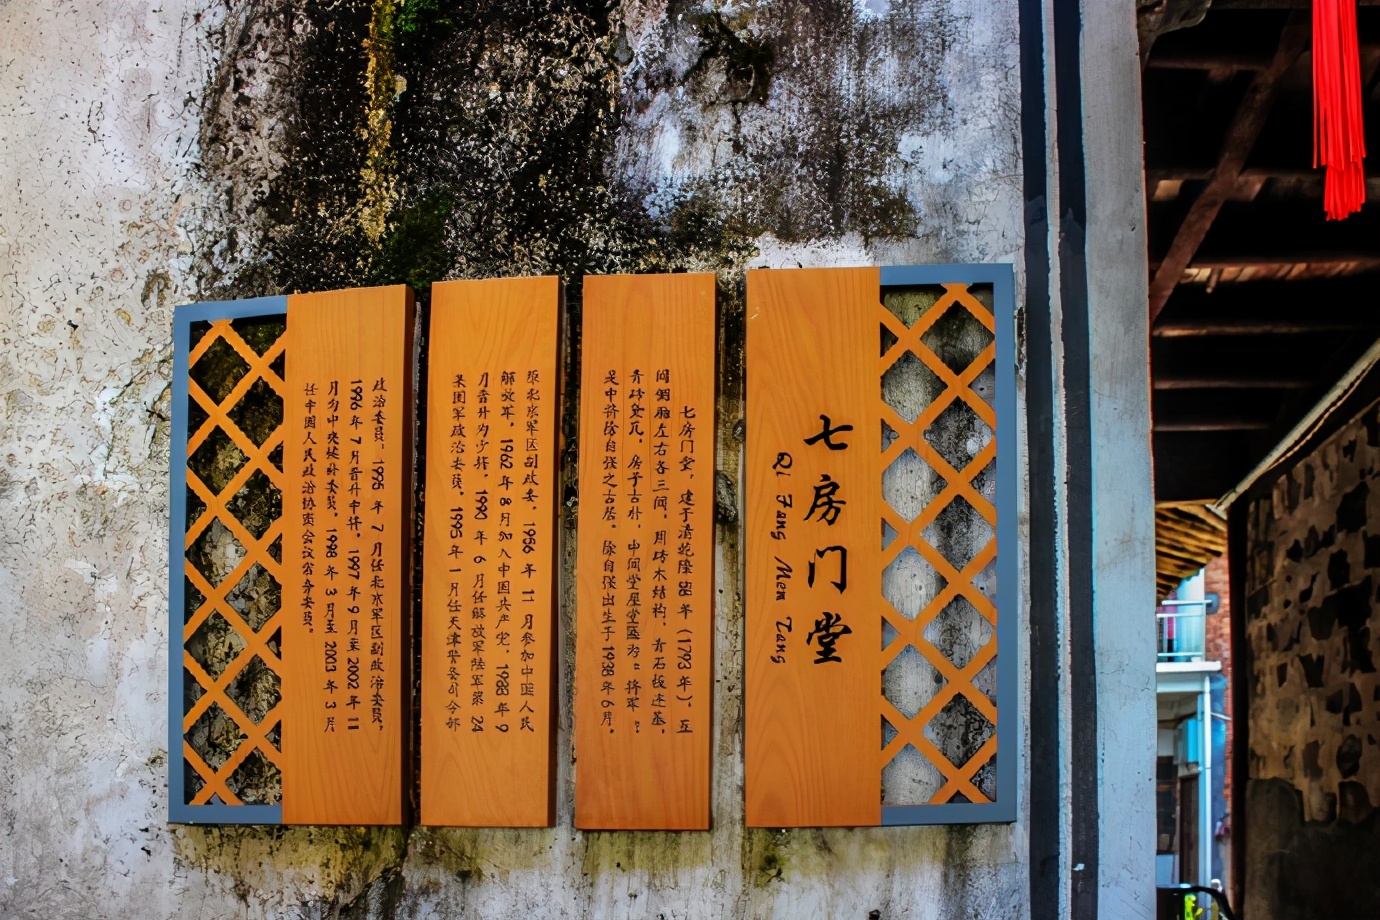 七房门堂
Qi Fang Men Tang
七房门堂，建于清乾隆58年（1793年），五
左右各三间，用砖木结构，青石板连基，
青砖叠瓦，房子古朴，中间堂屋堂匾为“将军”，
是中将徐自强之古居。徐自强出生于1938年6月，
原北京军区副政委。1956年11月参加中国人民
解放军，1962年8月加入中国共产党，1988年9
月晋升为少将，1990年6月任解放军陆军第24
集团军政治委员，1995年1月任天津警备司令部
政治委员；1995年7月任北京军区副政治委员，
1996年7月晋升中将，1997年9月至2002年11
月为中央候补委员，1998年3月至2003年3月
任中国人民政治协商会议委员。